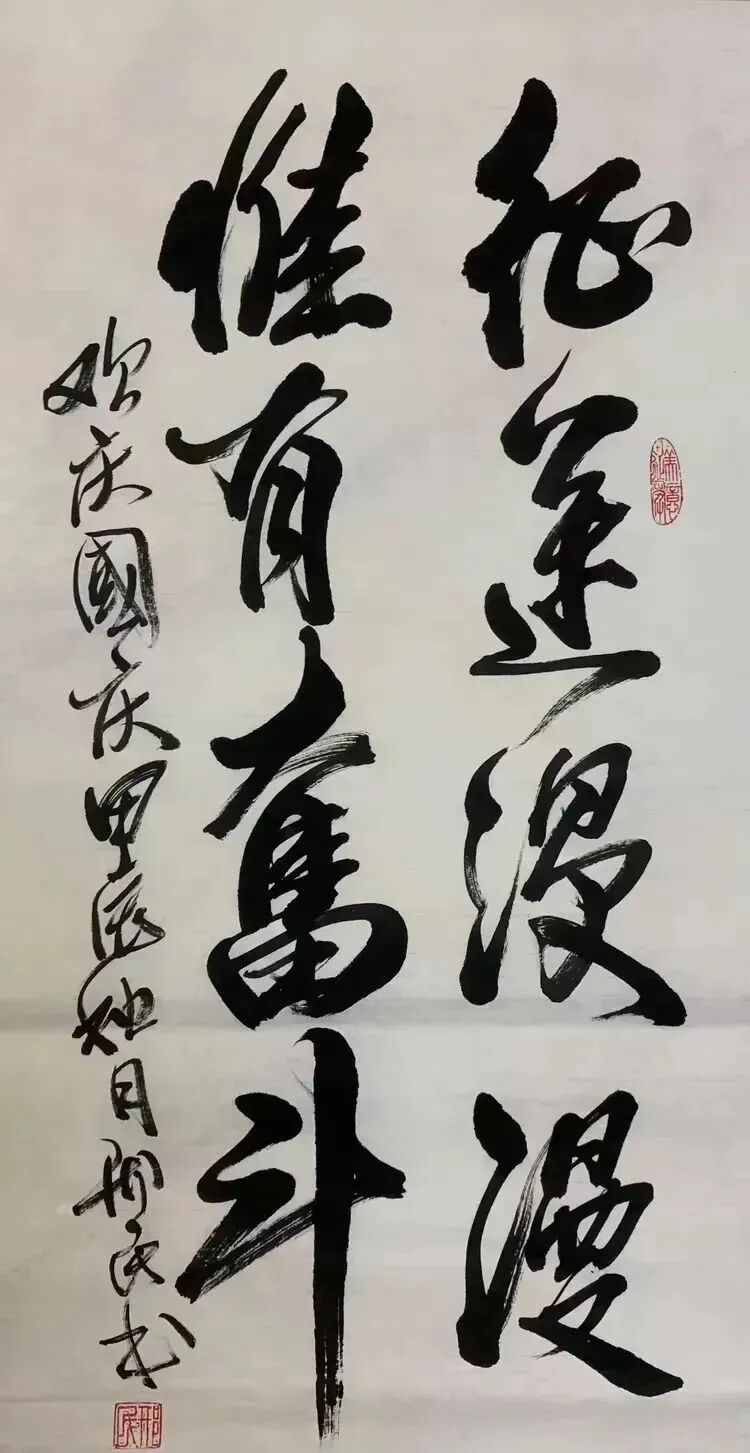 征途漫漫
惟有奮斗
欢庆國庆甲辰秋日邢民书